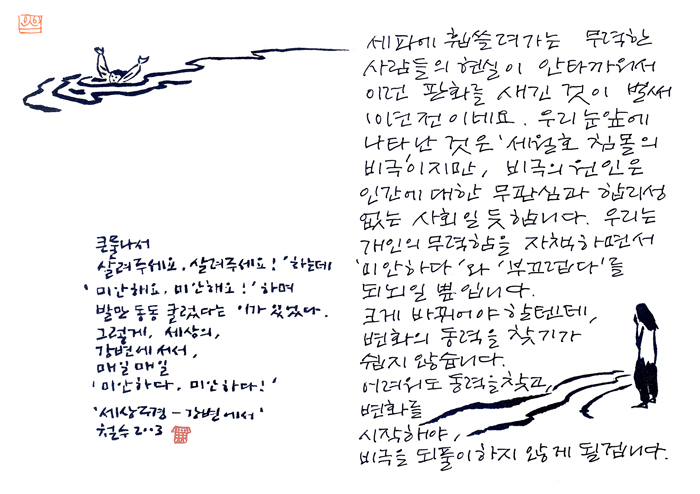 큰물 나서
살려주세요, 살려주세요! '하는데
'미안해요, 미안해요!' 하며
발만 동동 굴렀다는 이가 있었다.
그렇게, 세상의,
강변에 서서,
매일 매일
'미안하다, 미안하다!'
'세상풍경 - 강변에서'
철수 2003
세파에 휩쓸려가는 무력한
사람들의 현실이 안타까워서
이런 판화를 새긴 것이 벌써
10년 전이네요. 우리 눈앞에
나타난 것은 '세월호 침몰의
비극'이지만, 비극의 원인은
인간에 대한 무관심과 합리성
없는 사회일 듯합니다. 우리는
개인의 무력함을 자책하면서
'미안하다'와 '부끄럽다'를
되뇌일 뿐입니다.
크게 바뀌어야 할텐데,
변화의 동력을 찾기가
쉽지 않습니다.
어려워도 동력을 찾고,
변화를
시작해야,
비극을 되풀이하지 않게 될겁니다.